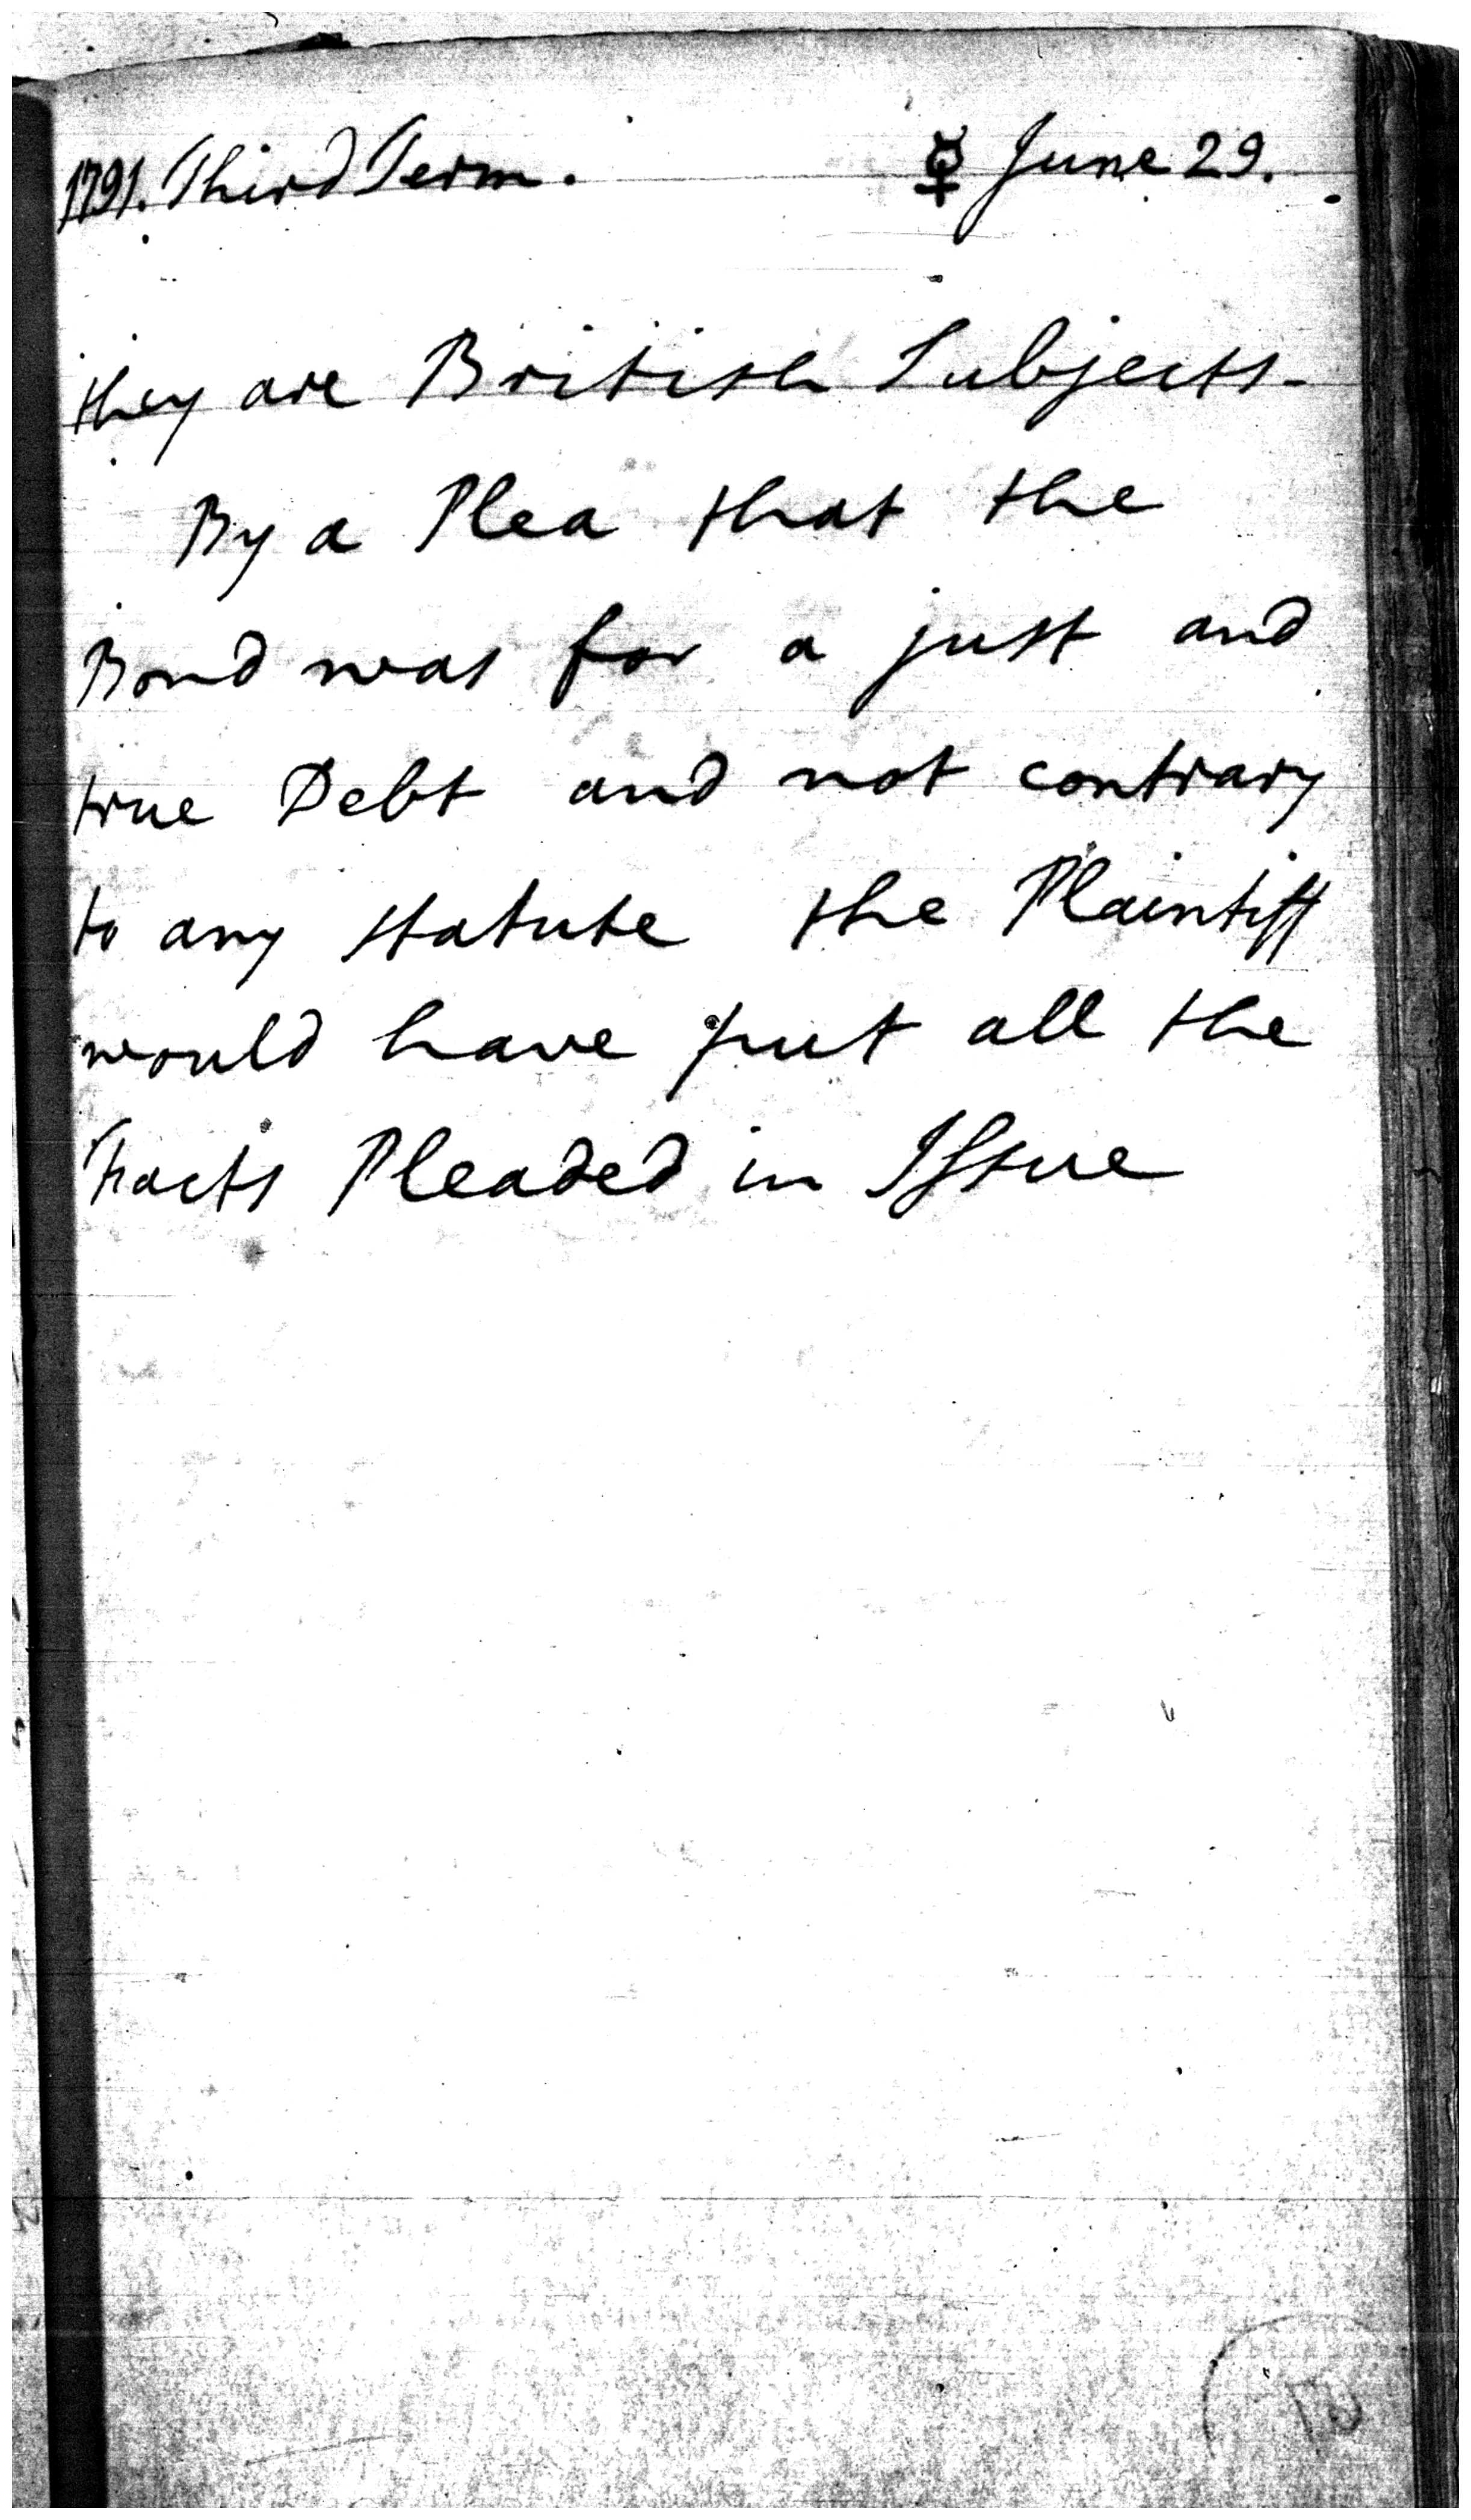 1791. Third Term. ☿ June 29.
they are British Subjects-
By a Plea that the
Bond was for a just and
true Debt and not contrary
to any statute the Plaintiff
would have put all the
Facts Pleaded in Issue